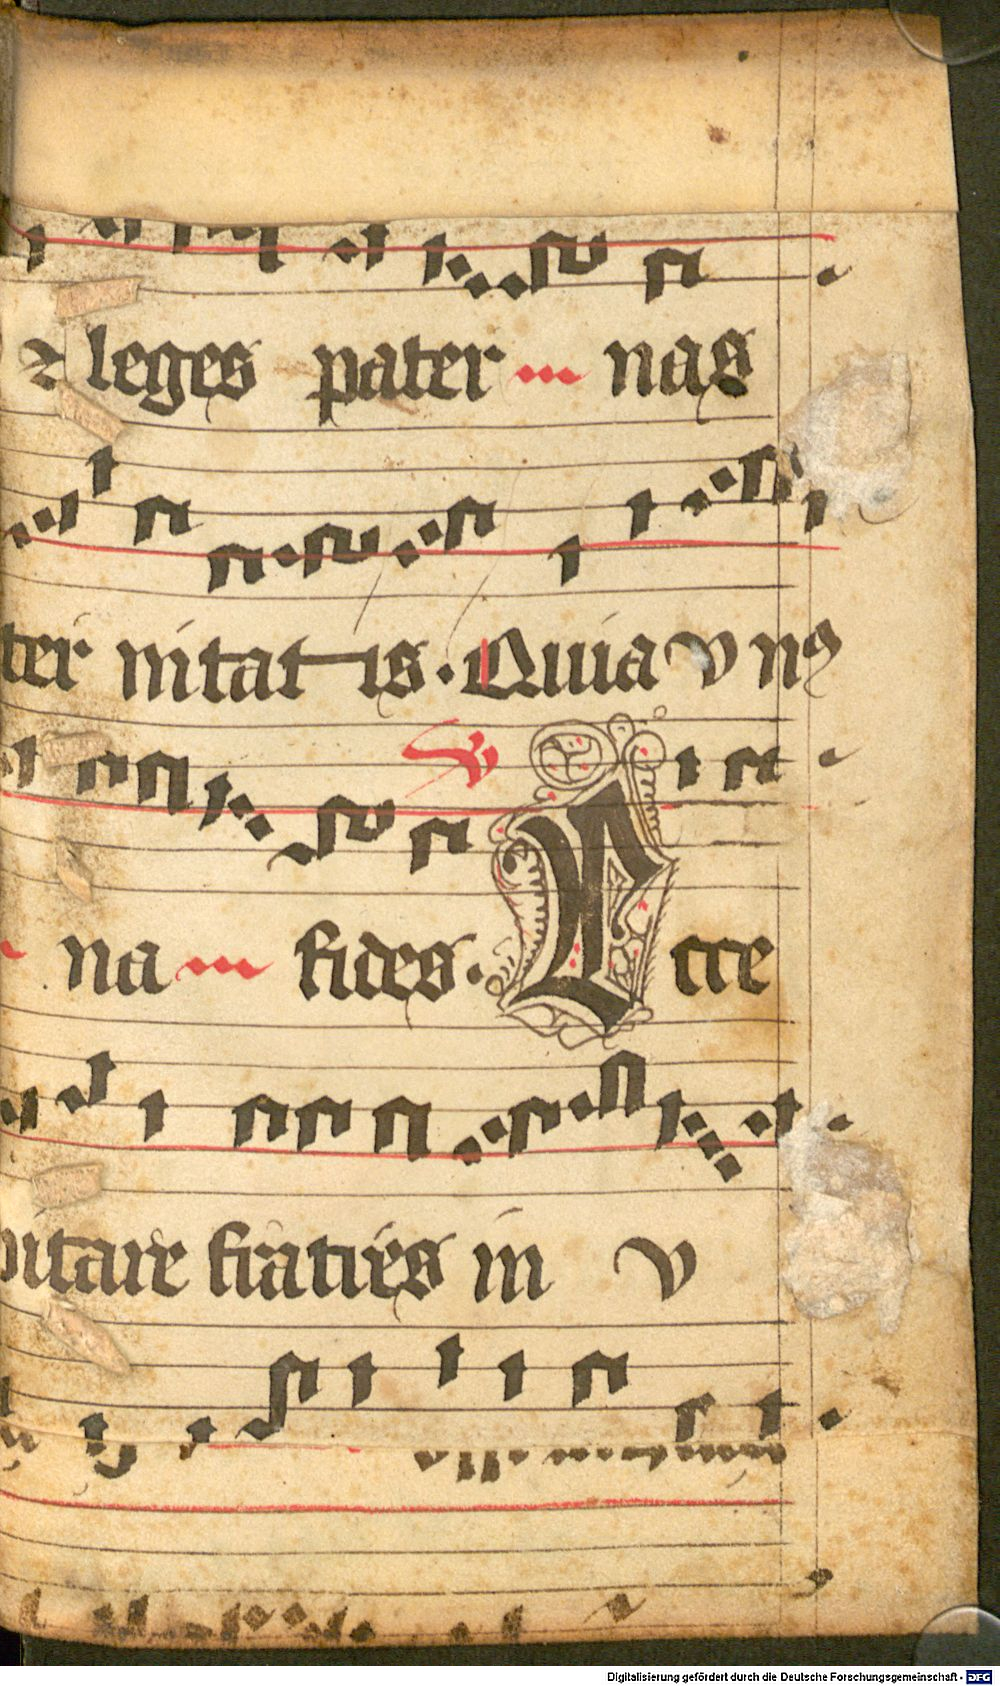 ⁊ leges pater nas
ter nitat is. Quia vnꝰ
na fides. ℣ Ecce
bitare fratres in v
Digitalisierung gefördert durch die Deutsche Forschungsgemeinschaft - DFG